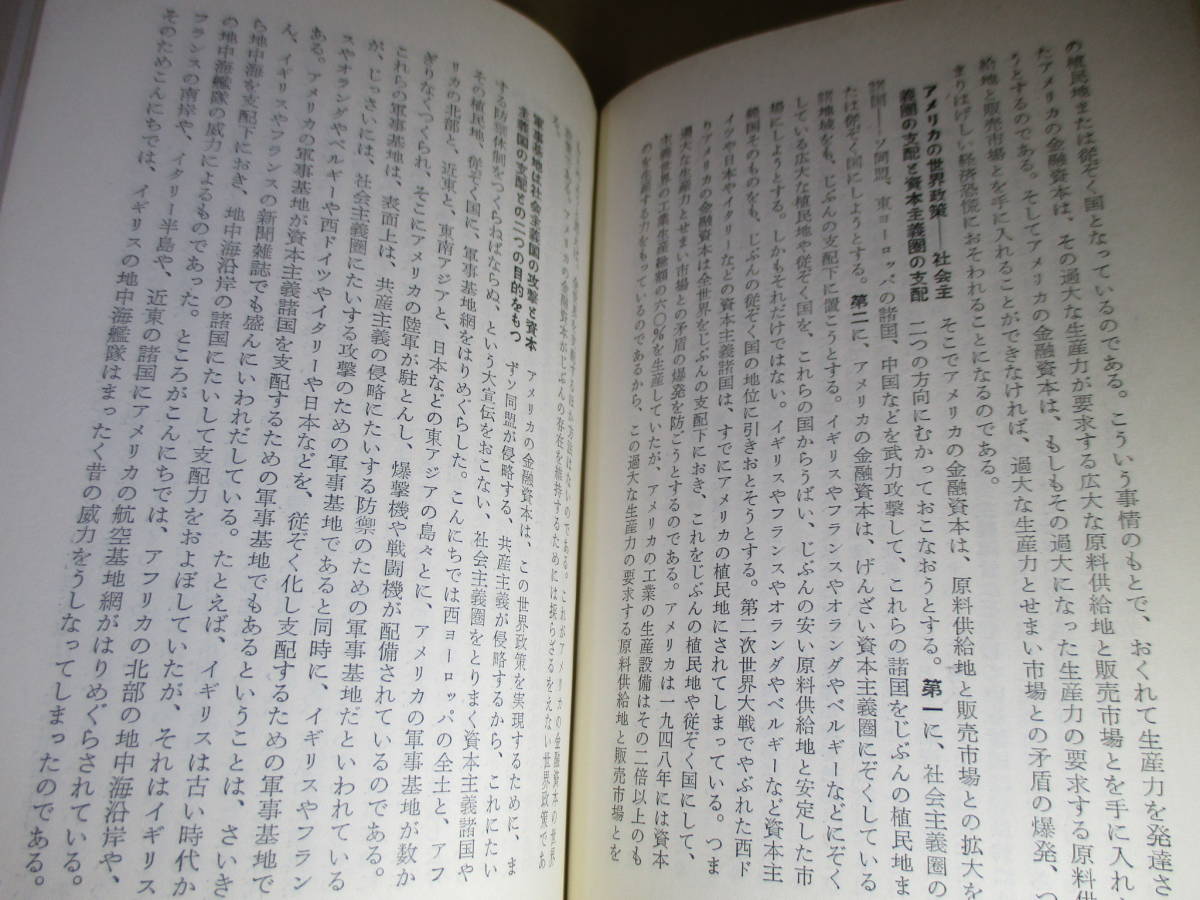 の植民地または従ぞく国となっているのである。こういう事情のもとで、おくれて生産力を発達さ
たアメリカの金融資本は、その過大な生産力が要求する広大な原料供給地と販売市場とを手に入れ
うとするのである。そしてアメリカの金融資本は、もしもその過大になった生産力の要求する原料供
給地と販売市場とを手に入れることができなければ、過大な生産力とせまい市場との矛盾の爆発、つ
まりはげしい経済恐慌におそわれることになるのである。
アメリカの世界政策――社会主
義圏の支配と資本主義圏の支配
そこでアメリカの金融資本は、原料供給地と販売市場との拡大を
二つの方向にむかっておこなおうとする。第一に、社会主義圏の
諸国――ソ同盟、東ヨーロッパの諸国、中国などを武力攻撃して、これらの諸国をじぶんの植民地ま
たは従ぞく国にしようとする。第二に、アメリカの金融資本は、げんざい資本主義圏にぞくしている
諸地域をも、じぶんの支配下に置こうとする。イギリスやフランスやオランダやベルギーなどにぞく
している広大な植民地や従ぞく国を、これらの国からうばい、じぶんの安い原料供給地と安定した市
場にしようとする。しかもそれだけではない。イギリスやフランスやオランダやベルギーなど資本主
義国そのものをも、じぶんの従ぞく国の地位に引きおとそうとする。第二次世界大戦でやぶれた西ド
イツや日本やイタリーなどの資本主義諸国は、すでにアメリカの植民地にされてしまっている。つま
りアメリカの金融資本は全世界をじぶんの支配下におき、これをじぶんの植民地や従ぞく国にして、
過大な生産力とせまい市場との矛盾の爆発を防ごうとするのである。アメリカは一九四八年には資本
主義世界の工業生産総額の六〇%を生産していたが、アメリカの工業の生産設備はその二倍以上のも
のを生産する力をもっているのであるから、この過大な生産力の要求する原料供給地と販売市場とを
ほか方法はないのである。これがアメリカの金融資本の世界
政策である。アメリカの金融資本がじぶんの存在を維持するためには採らざるをえない世界政策であ
る。
軍事基地は社会主義国の攻撃と資本
主義国の支配との二つの目的をもつ
アメリカの金融資本は、この世界政策を実現するために、ま
ずソ同盟が侵略する、共産主義が侵略するから、これにたい
する防禦体制をつくらねばならぬ、という大宣伝をおこない、社会主義圏をとりまく資本主義諸国や
その植民地、従ぞく国に、軍事基地網をはりめぐらした。こんにちでは西ヨーロッパの全土と、アフ
リカの北部と、近東と、東南アジアと、日本などの東アジアの島々とに、アメリカの軍事基地が数か
ぎりなくつくられ、そこにアメリカの陸軍が駐とんし、爆撃機や戦闘機が配備されているのである。
これらの軍事基地は、表面上は、共産主義の侵略にたいする防禦のための軍事基地だといわれている
が、じっさいには、社会主義圏にたいする攻撃のための軍事基地であると同時に、イギリスやフラン
スやオランダやベルギーや西ドイツやイタリーや日本などを、従ぞく化し支配するための軍事基地で
ある。アメリカの軍事基地が資本主義諸国を支配するための軍事基地でもあるということは、さいき
ん、イギリスやフランスの新聞雑誌でも盛んにいわれだしている。たとえば、イギリスは古い時代か
ら地中海を支配下におき、地中海沿岸の諸国にたいして支配力をおよぼしていたが、それはイギリス
の地中海艦隊の威力によるものであった。ところがこんにちでは、アフリカの北部の地中海沿岸や、
フランスの南岸や、イタリー半島や、近東の諸国にアメリカの航空基地網がはりめぐらされている。
そのためこんにちでは、イギリスの地中海艦隊はまったく昔の威力をうしなってしまったのである。